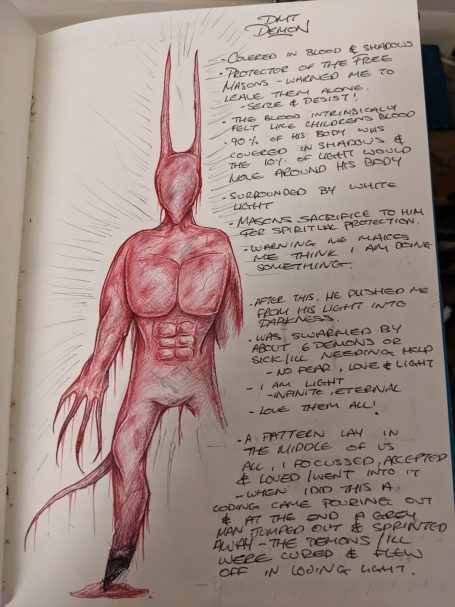 DMT
DEMON
- COVERED IN BLOOD & SHADOWS
- PROTECTOR OF THE FREE
MASONS - WARNED ME TO
LEAVE THEM ALONE.
- SEIZE & DESIST!
- THE BLOOD INTRINSICALLY
FELT LIKE CHILDRENS BLOOD
- 90% OF HIS BODY WAS
COVERED IN SHADOWS &
THE 10% OF LIGHT WOULD
MOVE AROUND HIS BODY
- SURROUNDED BY WHITE
LIGHT
- MASONS SACRIFICE TO HIM
FOR SPIRITUAL PROTECTION.
- WARNING ME MAKES
ME THINK I AM DOING
SOMETHING!
- AFTER THIS, HE PUSHED ME
FROM HIS LIGHT INTO
DARKNESS.
- WAS SWARMED BY
ABOUT 6 DEMONS OR
SICK/ILL NEEDING HELP
- NO FEAR, LOVE & LIGHT
- I AM LIGHT
- INFINITE, ETERNAL
- LOVE THEM ALL!
- A PATTERN LAY IN
THE MIDDLE OF US
ALL, I FOCUSSED, ACCEPTED
& LOVED/WENT INTO IT
- WHEN I DID THIS A
CODING CAME POURING OUT
& AT THE END A GREY
MAN JUMPED OUT & SPRINTED
AWAY - THE DEMONS/ILL
WERE CURED & FLEW
OFF IN LOVING LIGHT.